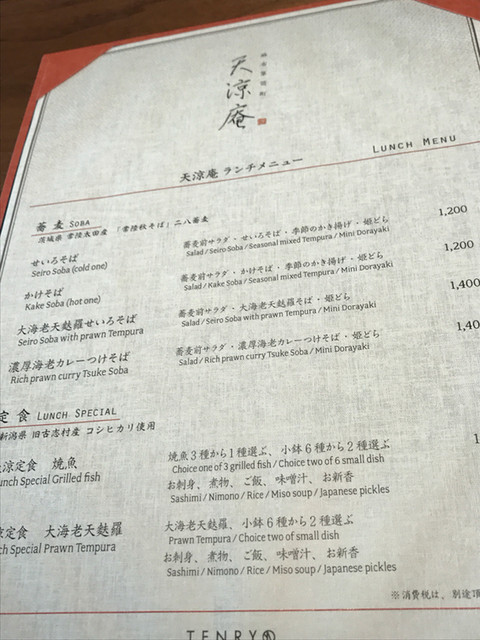 天涼庵
LUNCH MENU
天涼庵 ランチメニュー
蕎麦 SOBA
茨城県 常陸太田産 「常陸秋そば」二八蕎麦
せいろそば 蕎麦前サラダ・せいろそば・季節のかき揚げ・姫どら 1,200
Seiro Soba (cold one) Salad / Seiro Soba / Seasonal mixed Tempura / Mini Dorayaki
かけそば 蕎麦前サラダ・かけそば・季節のかき揚げ・姫どら 1,200
Kake Soba (hot one) Salad / Kake Soba / Seasonal mixed Tempura / Mini Dorayaki
大海老天麩羅せいろそば 蕎麦前サラダ・大海老天麩羅そば・姫どら 1,400
Seiro Soba with prawn Tempura Salad / Seiro Soba with prawn Tempura / Mini Dorayaki
濃厚海老カレーつけそば 蕎麦前サラダ・濃厚海老カレーつけそば・姫どら 1,40
Rich prawn curry Tsuke Soba Salad / Rich prawn curry Tsuke Soba / Mini Dorayaki
定食 LUNCH SPECIAL
新潟県 旧古志村産 コシヒカリ使用
涼定食 焼魚 焼魚3種から1種選ぶ、小鉢6種から2種選ぶ 1
unch Special Grilled fish Choice one of 3 grilled fish / Choice two of 6 small dish
お刺身、煮物、ご飯、味噌汁、お新香
Sashimi / Nimono / Rice / Miso soup / Japanese pickles
涼定食 大海老天麩羅 大海老天麩羅、小鉢6種から2種選ぶ
ch Special Prawn Tempura Prawn Tempura / Choice two of small dish
お刺身、煮物、ご飯、味噌汁、お新香
Sashimi / Nimono / Rice / Miso soup / Japanese pickles
※消費税は、別途頂
TENRYO